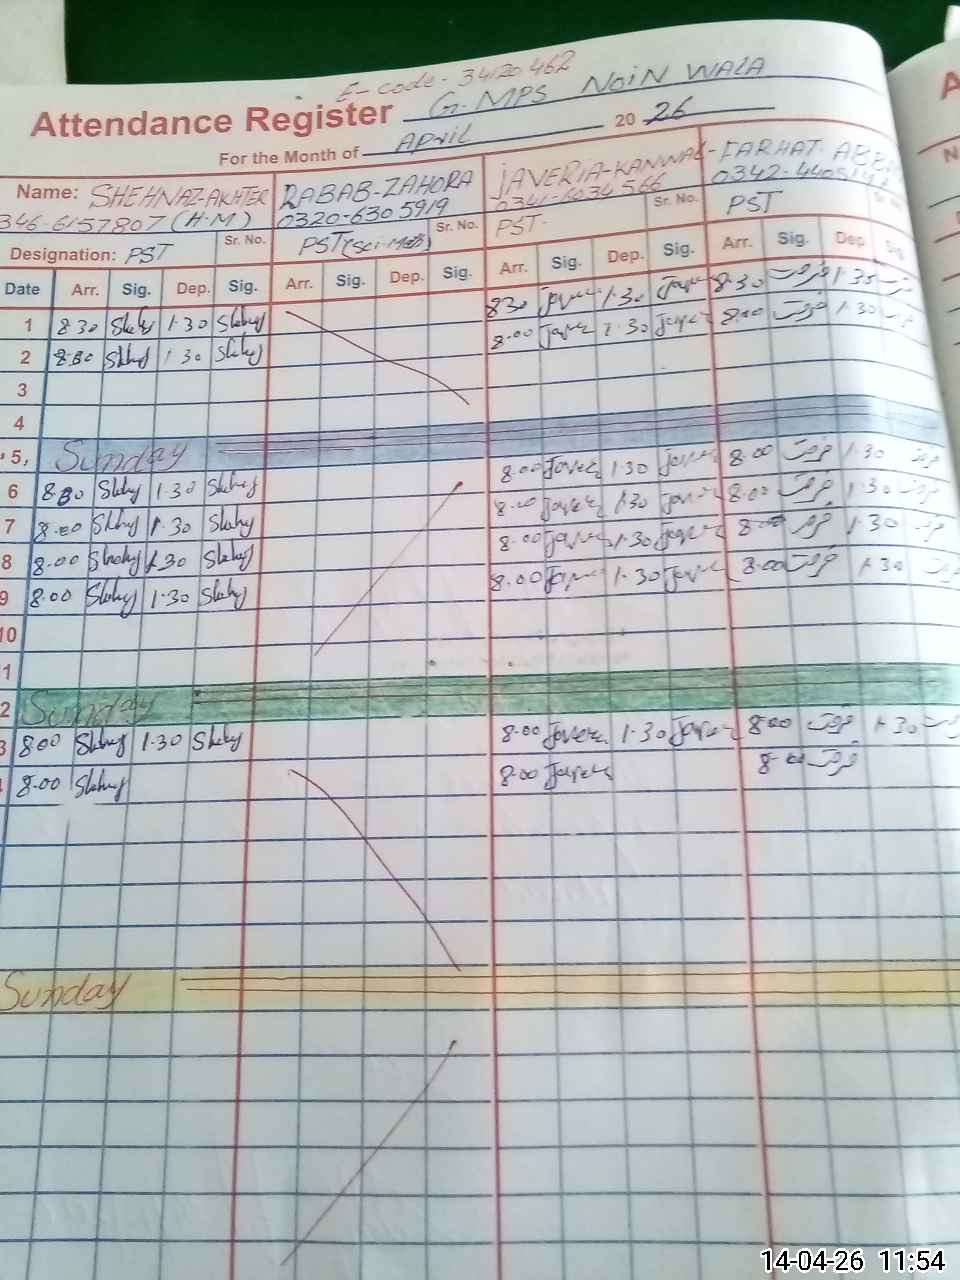 E-code-34120462
Attendance Register G.MPS NOIN WALA
For the Month of April 20 26
Name: SHEHNAZ-AKHTER RABAB-ZAHORA JAVERIA-KANWAL- FARHAT. ABBA
346-6157807 (H.M) 0320-6305919 0341-6034566 0342-4405
Designation: PST Sr. No. PST(Sci-Math) Sr. No. PST- Sr. No. PST
Date Arr. Sig. Dep. Sig. Arr. Sig. Dep. Sig. Arr. Sig. Dep. Sig. Arr. Sig. Dep. Sig
1 8 30 1·30 830 1·30 8·30 فرحت 1·30
2 8·30 1·30 8·00 1·30 8:00 فرحت 1·30
3
4
5, Sunday
6 8·30 1·30 8·00 Javer 1·30 Javer 8·00 فرحت 1·30
7 8·00 1·30 8·00 1·30 8·00 فرحت 1·30
8 8·00 1·30 8·00 1·30 8·00 فرحت 1·30
9 8·00 1·30 8·00 1·30 8·00 فرحت 1·30
10
1
2 Sunday
3 8·00 1·30 8·00 Javer 1·30 Javer 8·00 فرحت 1·30
8·00 8·00 Javer 8·00 فرحت
Sunday
14-04-26 11:54